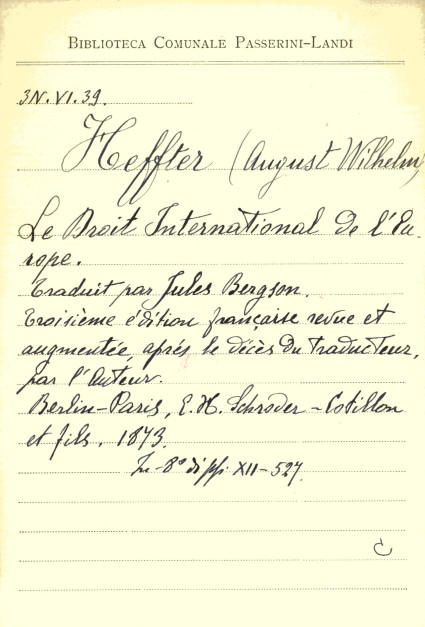 BIBLIOTECA COMUNALE PASSERINI-LANDI
3N.VI.39.
Heffter (August Wilhelm)
Le Droit International de l'Eu-
rope.
Traduit par Jules Bergson.
Troisième édition française revue et
augmentée, après le décès du traducteur,
par l'Auteur.
Berlin-Paris, E.H. Schroder-Cotillon
et fils, 1873.
In-8° di pp. XII-527.
C